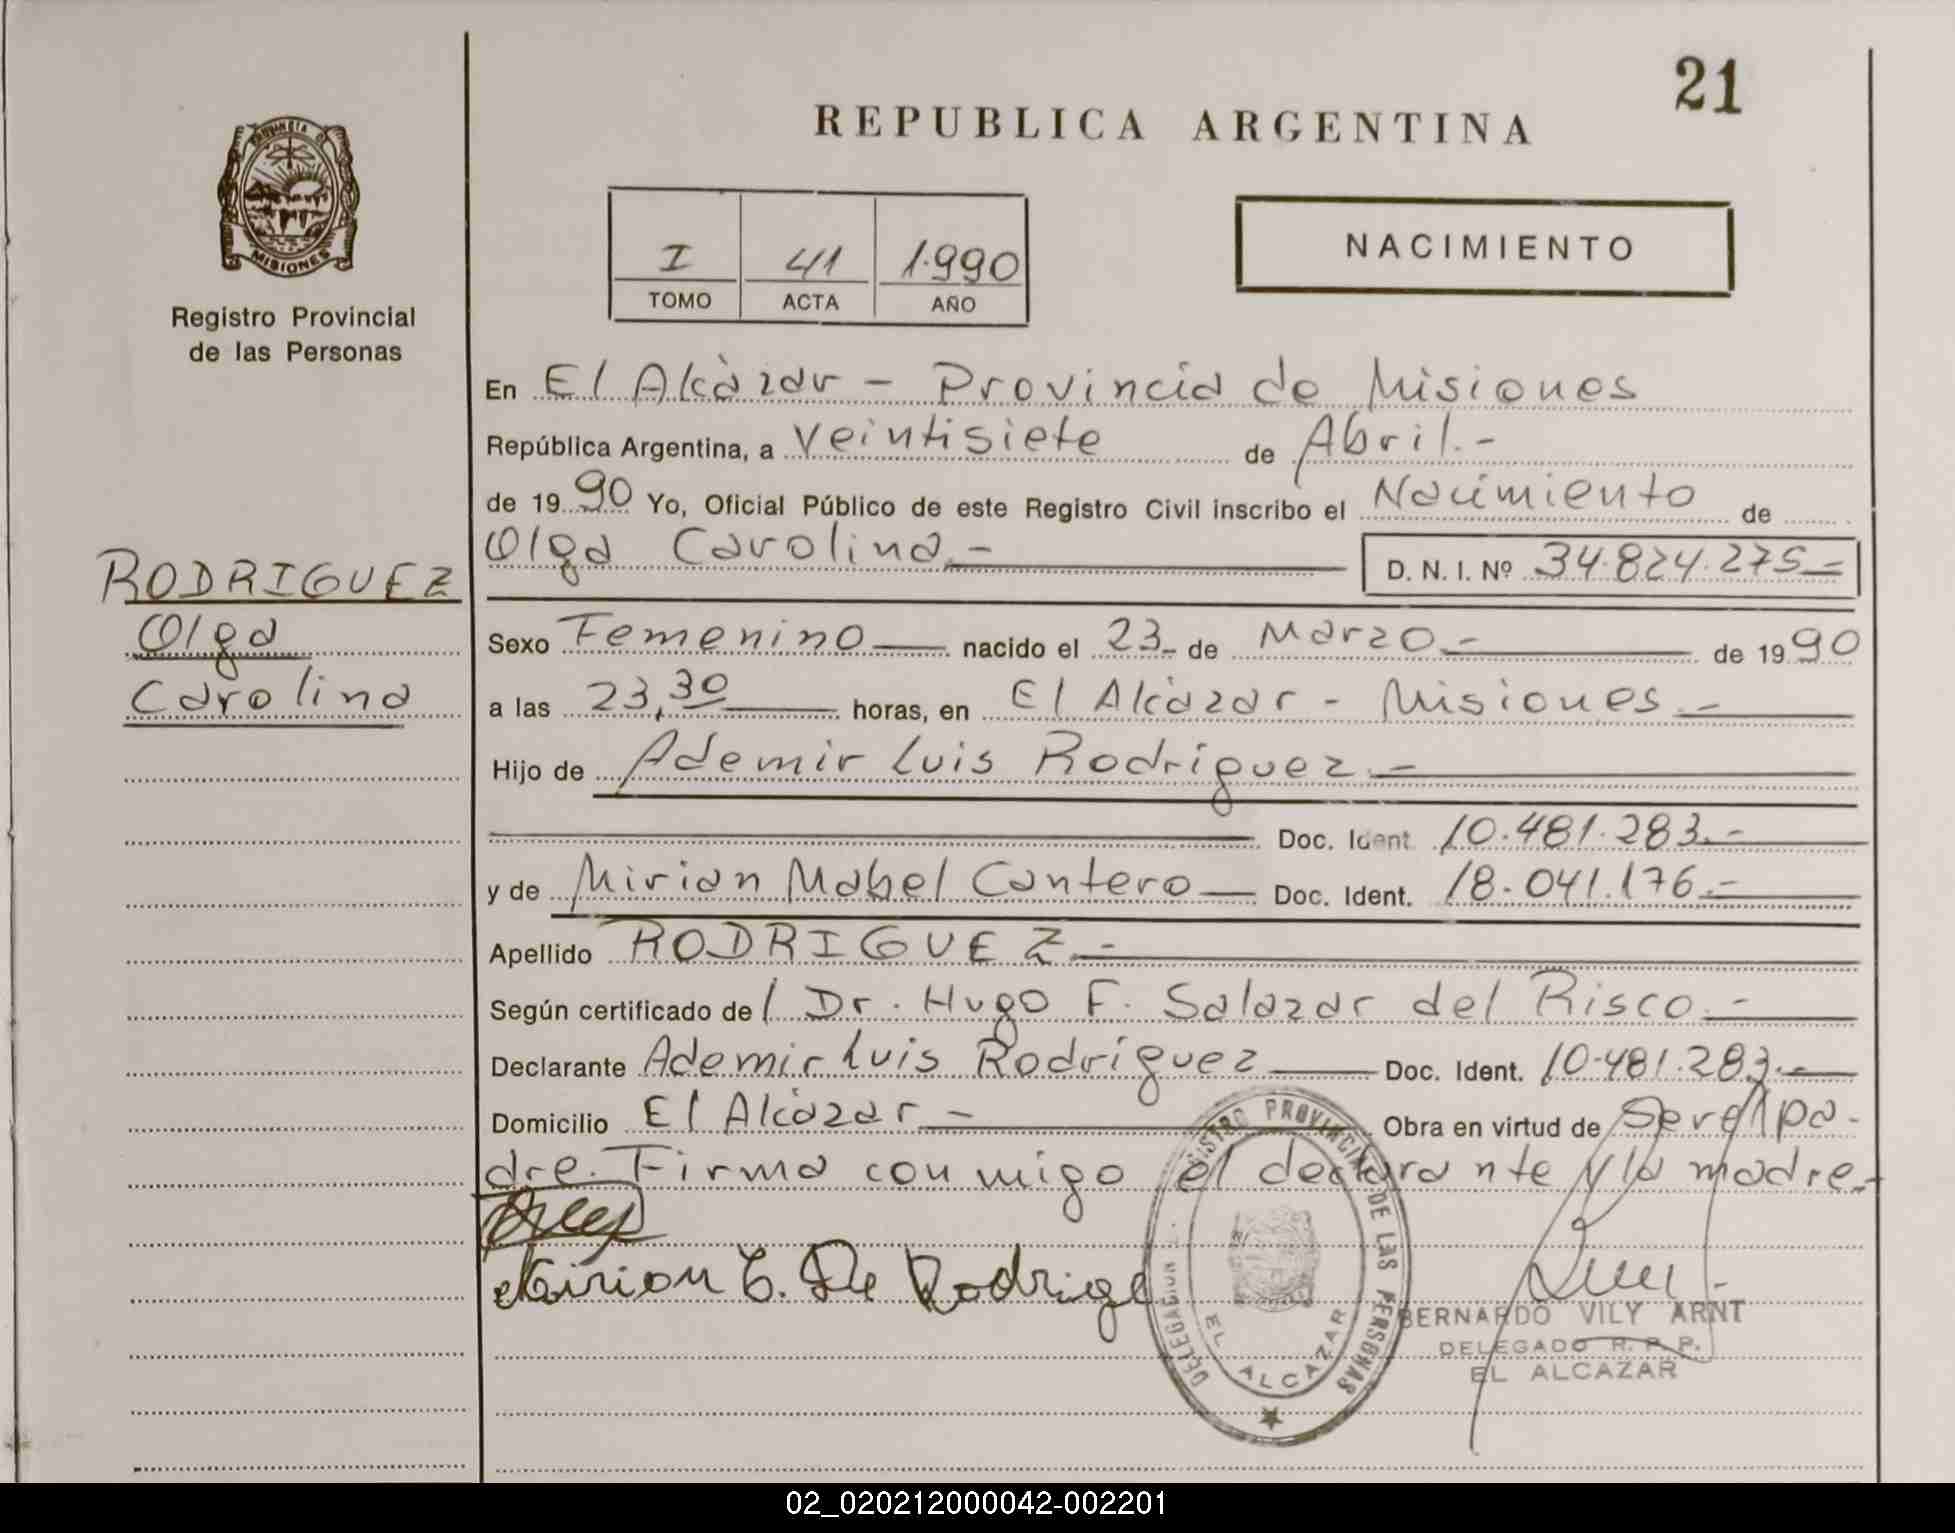 21
REPUBLICA ARGENTINA
PROVINCIA DE
MISIONES
Registro Provincial
de las Personas
I 41 1.990
TOMO ACTA AÑO
NACIMIENTO
En El Alcàzar - Provincia de Misiones
República Argentina, a Veintisiete de Abril.-
de 19 90 Yo, Oficial Público de este Registro Civil inscribo el Nacimiento de
Olga Carolina.- D. N. I. Nº 34.824.275-
RODRIGUEZ
Olga
Carolina
Sexo Femenino nacido el 23- de Marzo.- de 19 90
a las 23,30 horas, en El Alcàzar - Misiones.-
Hijo de Ademir Luis Rodríguez.-
Doc. Ident. 10.481.283.-
y de Mirian Mabel Cantero Doc. Ident. 18.041.176.-
Apellido RODRIGUEZ.-
Según certificado del Dr. Hugo F. Salazar del Risco.-
Declarante Ademir Luis Rodríguez Doc. Ident. 10.481.283.-
Domicilio El Alcàzar.- Obra en virtud de Ser el pa-
dre. Firma conmigo el declarante y la madre.-
Mirian C. De Rodrige
REGISTRO PROVINCIAL DE LAS PERSONAS
DELEGACION
EL ALCAZAR
BERNARDO VILY ARNT
DELEGADO R. P. P.
EL ALCAZAR
02_020212000042-002201